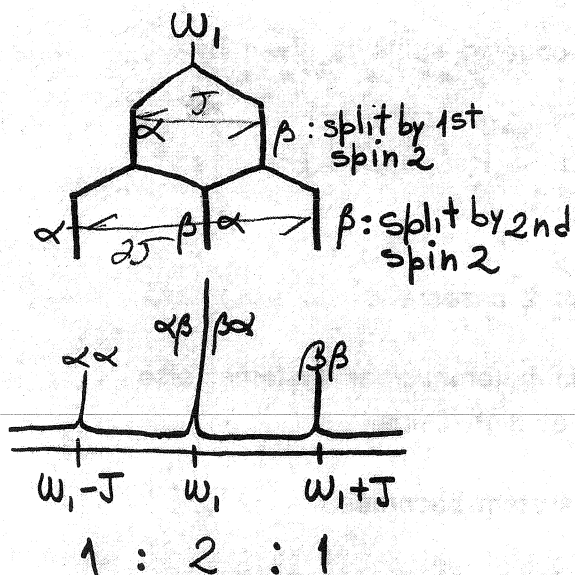 ω₁
J
α β : split by 1st
spin 2
α β α β : split by 2nd
2J spin 2
αβ βα
αα ββ
ω₁-J ω₁ ω₁+J
1 : 2 : 1